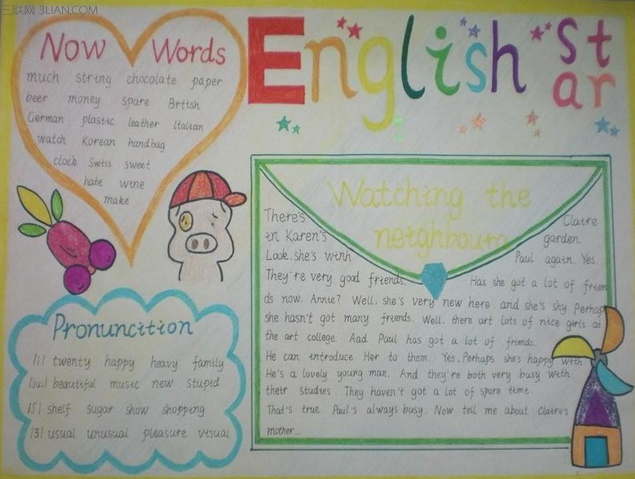 三联网 3LIAN.COM
English St
ar
Now Words
much string chocolate paper
beer money spare British
German plastic leather Italian
watch Korean handbag
clock Swiss sweet
hate wine
make
Watching the
neighbours
There's Claire
in Karen's garden.
Look, she's with Paul again. Yes.
They're very good friends. Has she got a lot of frien
ds now. Annie? Well, she's very new here. and she's shy. Perhap
she hasn't got many friends. Well. there art lots of nice girls at
the art college. Aad Paul has got a lot of friends.
He can introduce Her to them. Yes, Perhaps she's happy with
He's a lovely young man. And they're both very busy with
their studies. They haven't got a lot of spare time.
That's true. Paul's always busy. Now tell me about Claire's
mother...
Pronuncition
|i| twenty happy heavy family
|ju:| beautiful music new stupid
|ʃ| shelf sugar show shopping
|ʒ| usual unusual pleasure visual